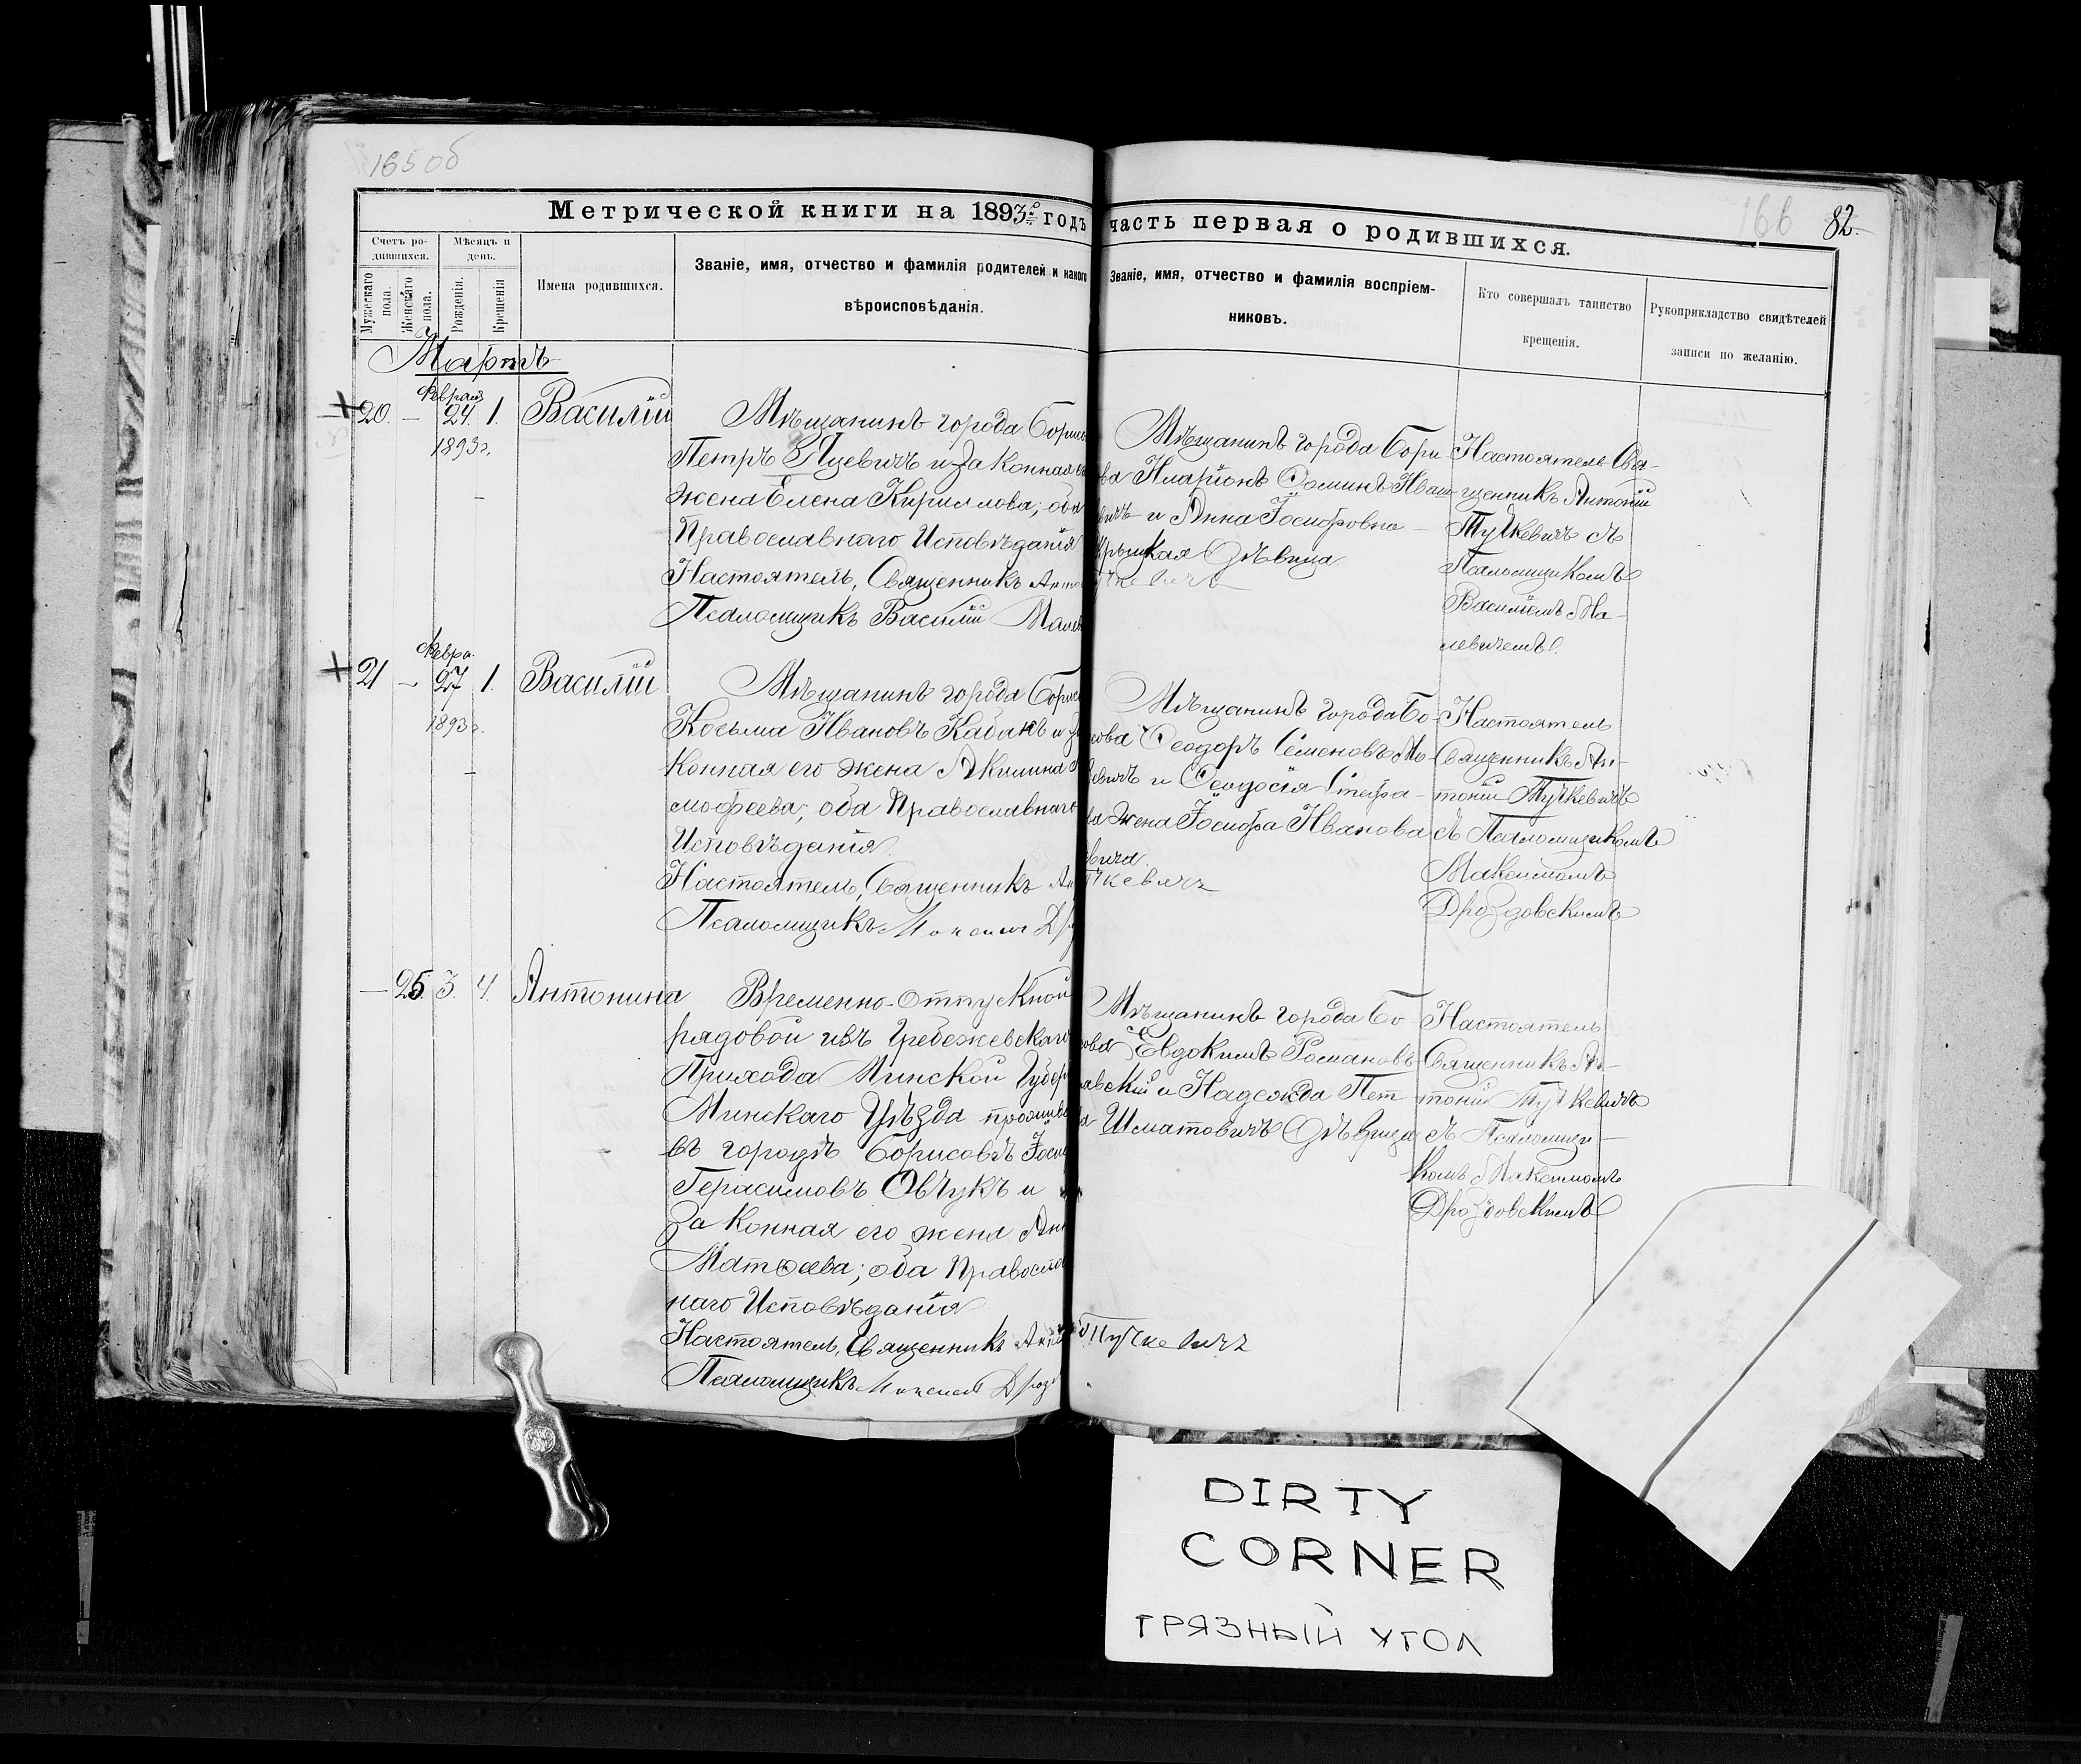 165 об
166
82.
Метрической книги на 1893й годъ
часть первая о родившихся.
Счетъ ро-
дившихся.
Мѣсяцъ и
день.
Мужескаго
пола.
Женскаго
пола.
Рожденія.
Крещенія
Имена родившихся.
Званіе, имя, отчество и фамилія родителей и какого
вѣроисповѣданія.
Званіе, имя, отчество и фамилія воспріем-
никовъ.
Кто совершалъ таинство
крещенія.
Рукоприкладство свидѣтелей
записи по желанію.
Мартъ
20. — Февраля 24. 1.
1893 г.
Василій
Мѣщанинъ города Борис
Петръ Яцевичъ и законная е
жена Елена Кириллова; оба
Православнаго Исповѣданія
Настоятель, Священникъ Анто
Псаломщикъ Василій Малев
Мѣщанинъ города Бори
ва Иларіонъ Ѳоминъ Иваш
вичъ и Анна Іосифовна
Крыцкая Дѣвица
учкевичъ
Настоятель Свя-
щенникъ Антоній
Тучкевичъ съ
Псаломщикомъ
Василіемъ Ма-
левичемъ.
21 — Февра. 27 1.
1893 г.
Василій
Мѣщанинъ города Борис
Косьма Ивановъ Кабакъ и за
конная его жена Акилина
мофеева; оба Православнаго
Исповѣданія
Настоятель, Священникъ Ан
Псаломщикъ Максим Др
Мѣщанинъ города Бо-
сова Ѳеодоръ Семеновъ Мо-
евичъ и Ѳеодосія Стефа-
ва жена Іосифа Иванова
вича
чкевичъ
Настоятель
Священникъ Ан-
тоній Тучкевичъ
съ Псаломщикомъ
Максимомъ
Дроздовскимъ
— 25. 3. 4.
Антонина
Временно-отпускной
рядовой изъ Гребежевскаго
Прихода Минской Губер
Минскаго Уѣзда прожив
въ городѣ Борисовѣ Іоси
Герасимовъ Овчукъ и
Законная его жена Ан
Матѳеева; оба Правосла
наго Исповѣданія
Настоятель, Священникъ Ант
Псаломщикъ Максим Дроз
Мѣщанинъ города Бо
сова Евдокимъ Романовъ
авскій и Надежда Пет
а Шматовичъ Дѣвица
Тучкевичъ
Настоятель
Священникъ Ан-
тоній Тучкевичъ
съ Псаломщи-
комъ Максимомъ
Дроздовскимъ
DIRTY
CORNER
ГРЯЗНЫЙ УГОЛ